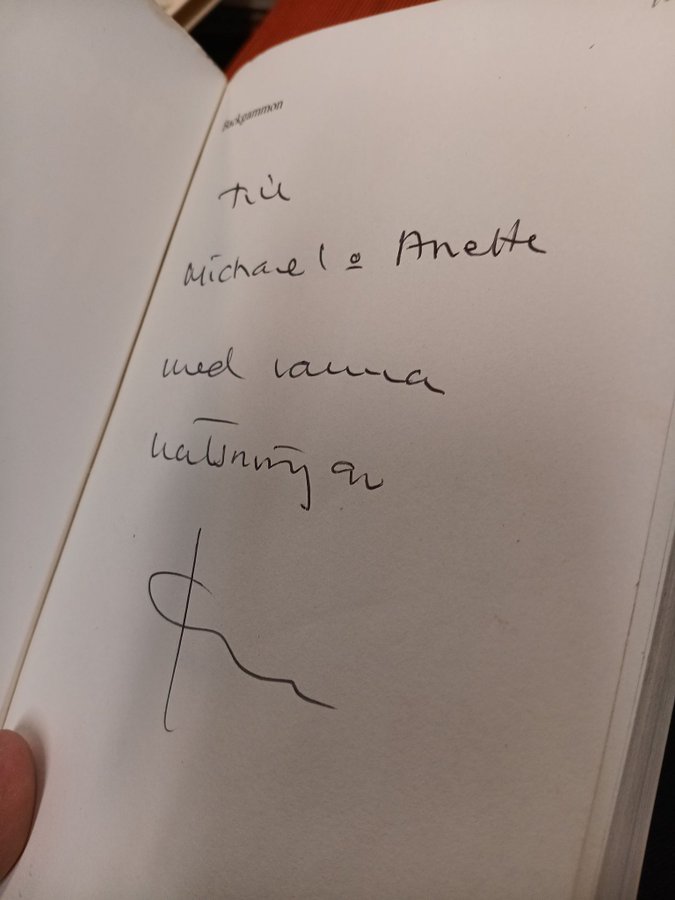 Backgammon
till
Michael o Anette
med varma
hälsningar